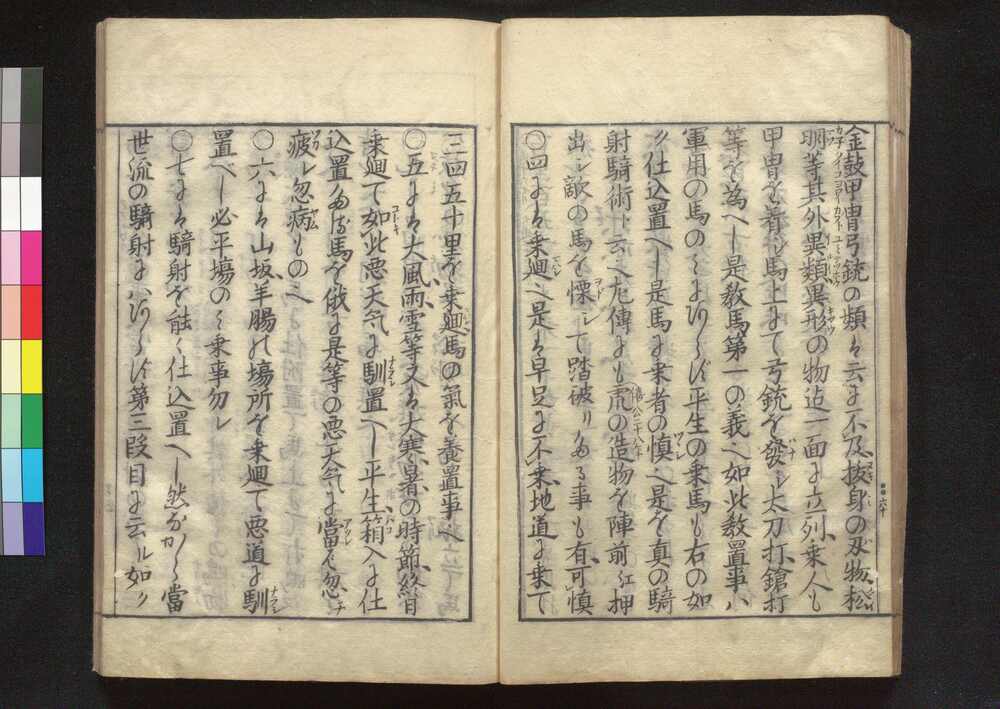 金鼓甲冑弓銃の類は云に不及抜身の刄物松
明等其外異類異形の物迄一面に立列乗人も
甲冑を着シ馬上にて弓銃を發シ太刀打鎗打
等を為へし是教馬第一の義也如此教置事ハ
軍用の馬のミにあらず平生の乗馬も右の如
ク仕込置へし是馬に乗者の慎也是を真の騎
射騎術ト云也左傳にも虎の造物を陣前江押
出シ敵の馬を慄シて踏破りある事も有可慎
○四には乗廻也是は早足に不乗地道に乗て
三四五十里を乗廻馬の氣を養置事也
○五には大風雨雪等又は大寒暑の時節終日
乗廻て如此悪天気に馴置へし平生箱入に仕
込置ある馬を俄に是等の悪天気に當れハ忽チ
疲レ忽病もの也
○六には山坂羊腸の場所を乗廻て悪道に馴
置べし必平場のミ乗事勿レ
○七には騎射を能く仕込置へし然なから當
世流の騎射にハあらず第三段目に云ル如ク